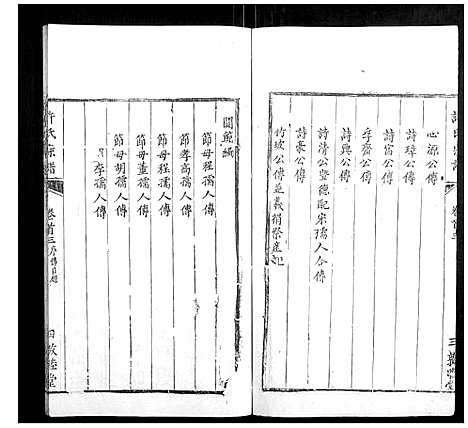 心源公傳
詩璋公傳
詩富公傳
孚齋公傳
詩興公傳
詩清公暨德配宋孺人合傳
詩豪公傳
竹坡公傳並義捐祭產記
卷首三
三
閫範編
節母程孺人傳
節孝高孺人傳
節母程孺人傳
節母董孺人傳
節母胡孺人傳
李孺人傳
許氏宗譜
卷首三
敦睦堂